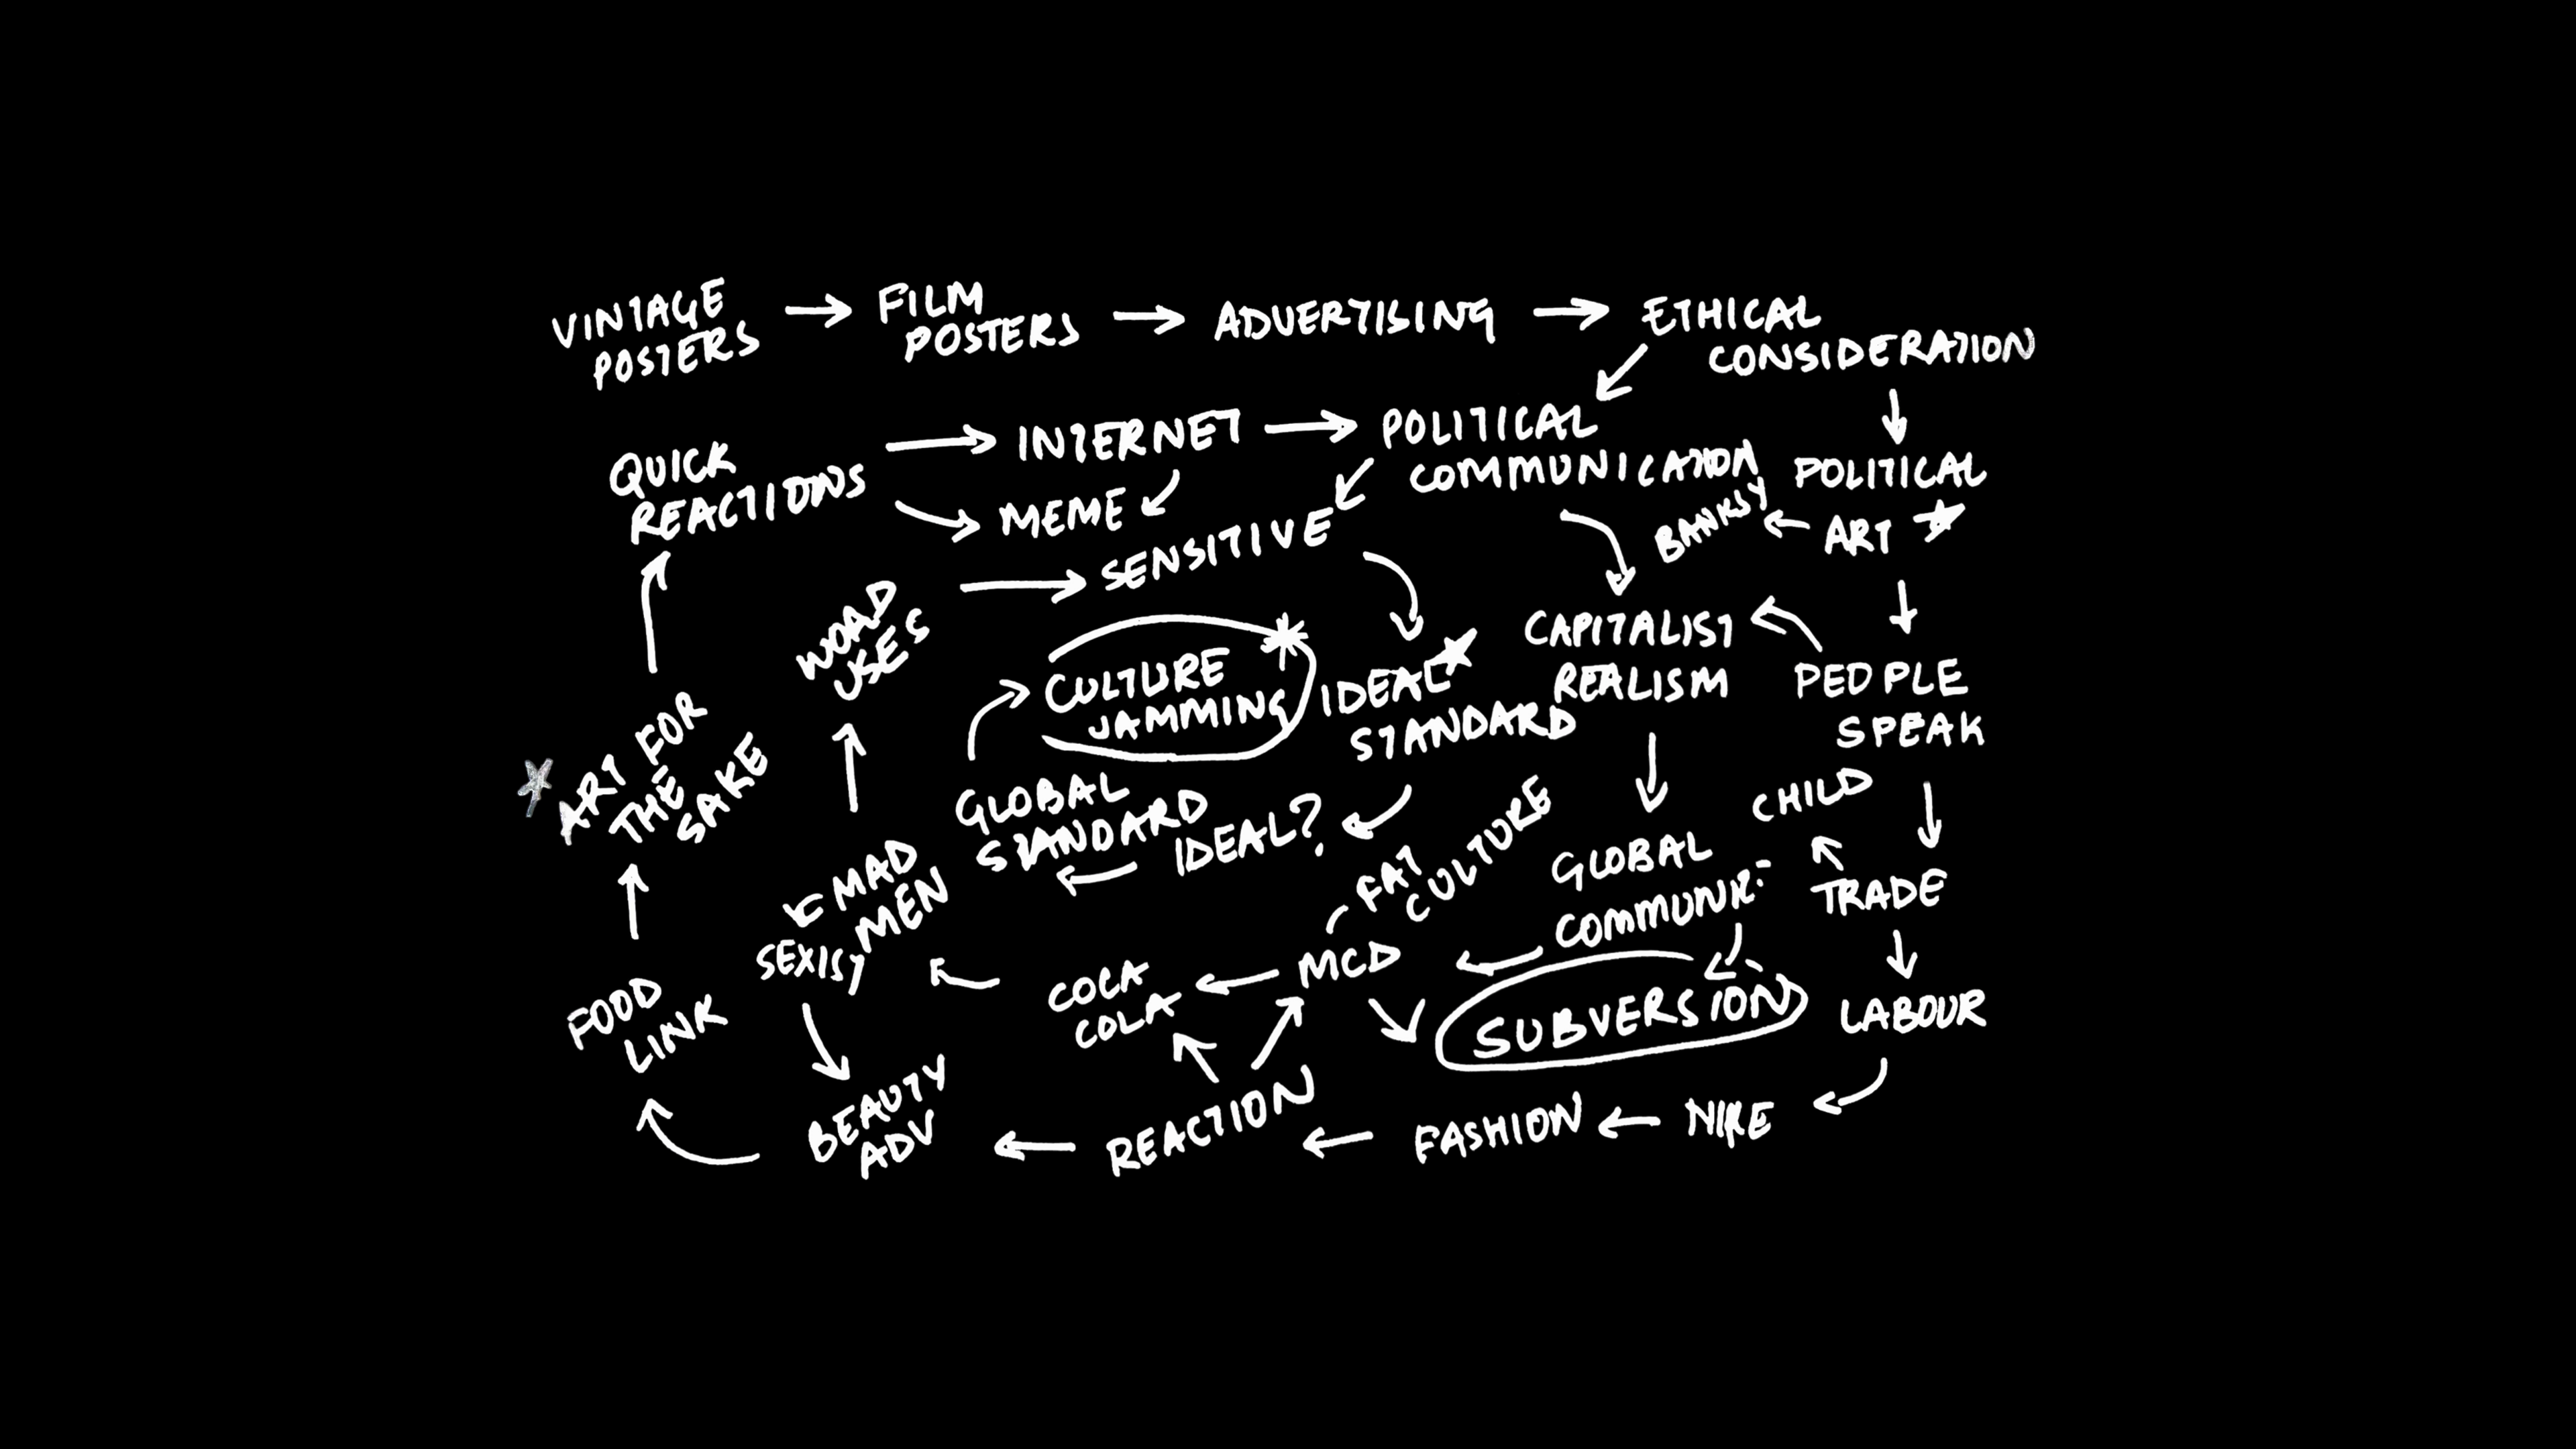 VINTAGE
POSTERS
FILM
POSTERS
ADVERTISING
ETHICAL
CONSIDERATION
QUICK
REACTIONS
INTERNET
MEME
POLITICAL
COMMUNICATION
POLITICAL
ART
BANKSY
SENSITIVE
WORD
USES
CULTURE
JAMMING
IDEAL
STANDARD
CAPITALIST
REALISM
PEOPLE
SPEAK
ART FOR
THE
SAKE
GLOBAL
STANDARD
IDEAL?
FAT
CULTURE
GLOBAL
COMMUNI-
CHILD
TRADE
MAD
MEN
SEXIST
COCA
COLA
MCD
SUBVERSION
LABOUR
FOOD
LINK
BEAUTY
ADV
REACTION
FASHION
NIKE